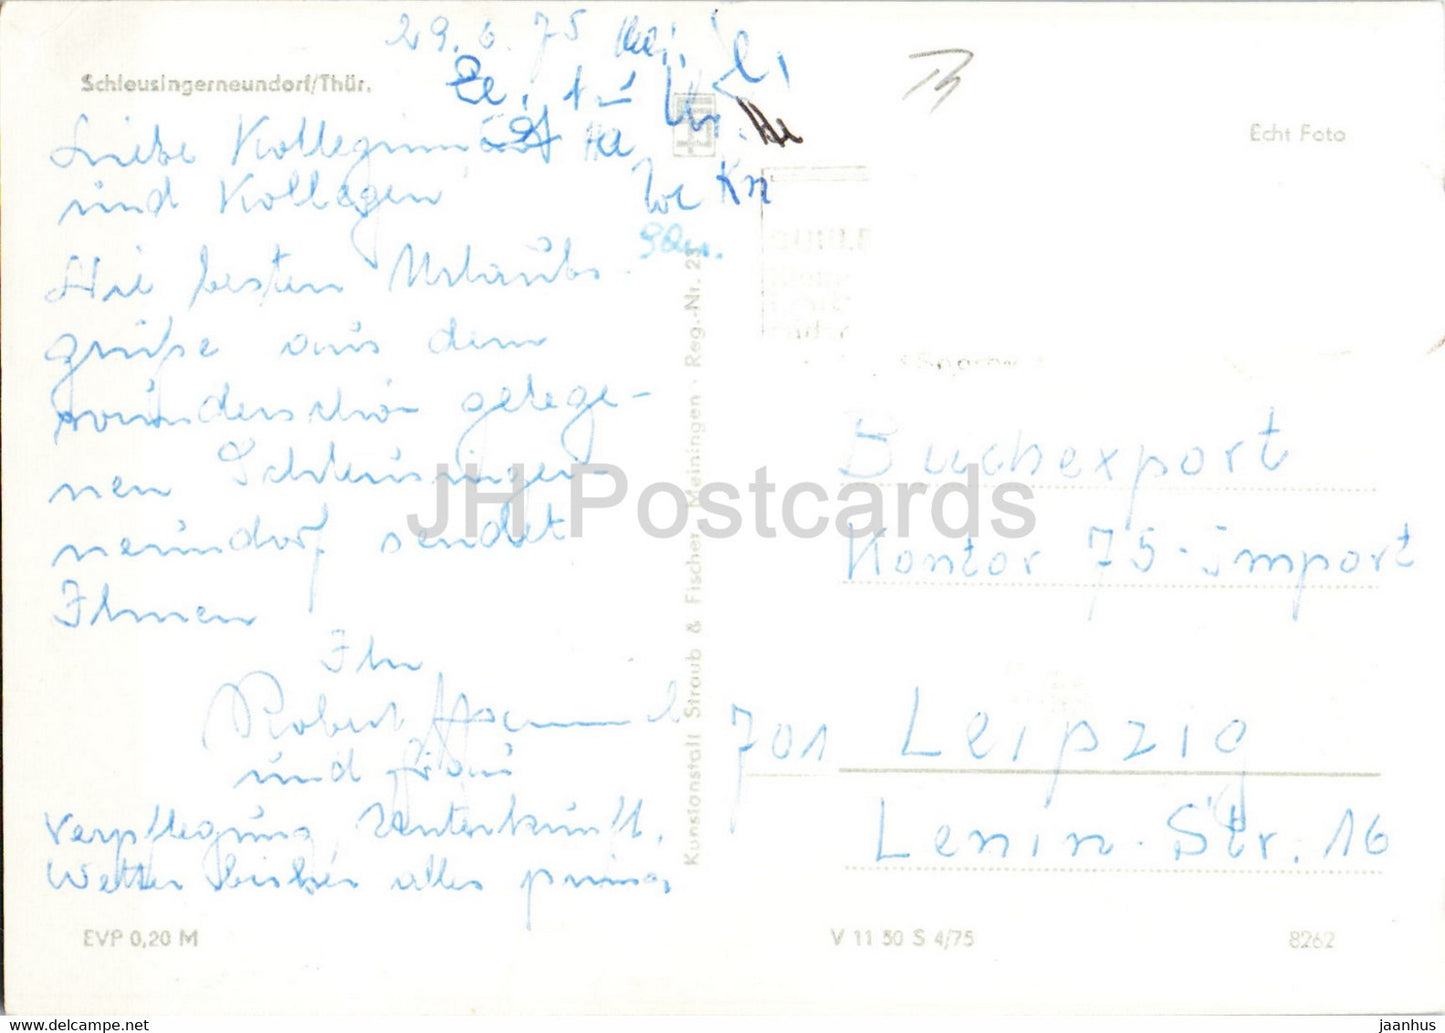 29.6.75
Schleusingerneundorf/Thür.
Echt Foto
Liebe Kolleginnen
und Kollegen
Kn
Die besten Urlaubs-
grüße aus dem
wunderschön gelege-
nen Schleusinger-
neundorf sendet
Ihnen
Ihr
Robert
und Frau
Verpflegung, Unterkunft,
Wetter bisher alles prima
Kunstanstalt Straub & Fischer Meiningen · Reg.-Nr. 23
Buchexport
Kontor 75-import
701 Leipzig
Lenin-Str. 16
EVP 0,20 M
V 11 50 S 4/75
8262
JH Postcards
www.delcampe.net
jaanhus